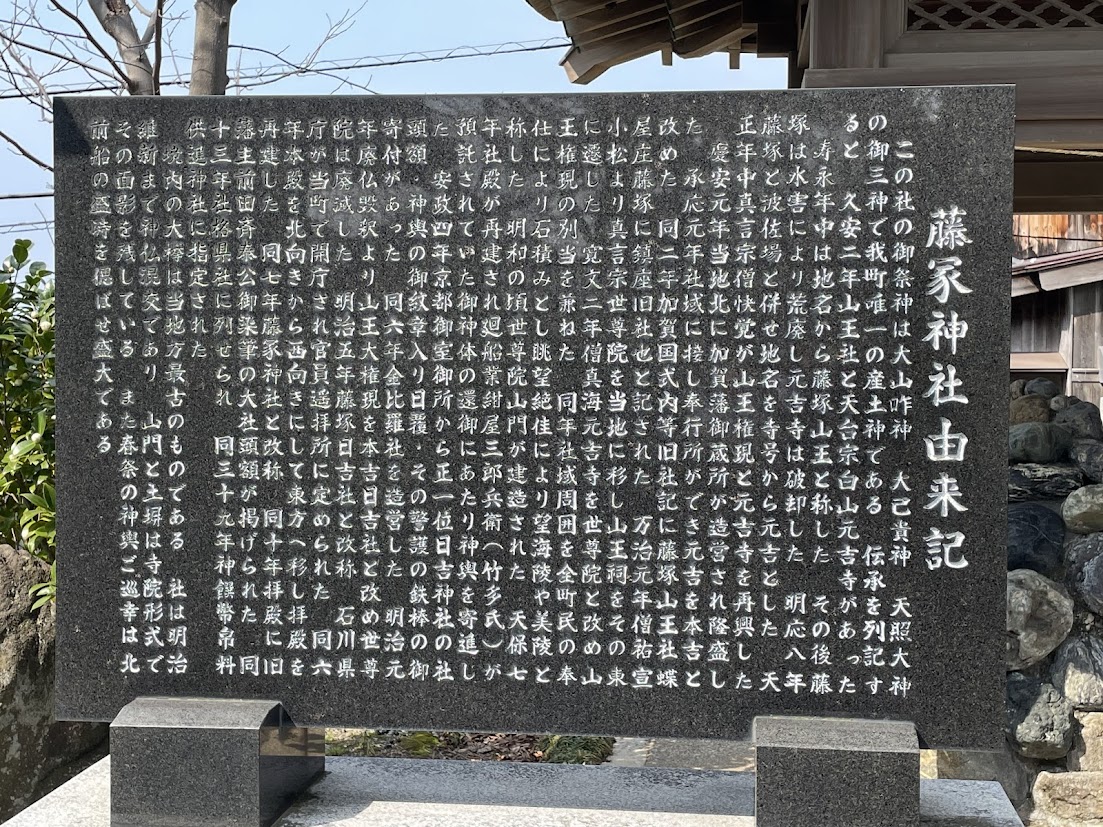 藤冢神社由来記
この社の御祭神は大山咋神 大己貴神 天照大神
の御三神で我町唯一の産土神である 伝承を列記す
ると 久安二年山王社と天台宗白山元吉寺があった
寿永年中は地名から藤塚山王と称した その後藤
塚は水害により荒廃し元吉寺は破却した 明応八年
藤塚と波佐場と併せ地名を寺号から元吉とした 天
正年中真言宗僧快覚が山王権現と元吉寺を再興した
慶安元年当地北に加賀藩御蔵所が造営され隆盛し
た 承応元年社域に接し奉行所ができ元吉を本吉と
改めた 同二年加賀国式内等旧社記に藤塚山王社蝶
屋庄藤塚に鎮座旧社也と記された 万治元年僧祐宣
小松より真言宗世尊院を当地に移し山王祠をその東
に遷した 寛文二年僧真海元吉寺を世尊院と改め山
王権現の別当を兼ねた 同年社域周囲を全町民の奉
仕により石積みとし眺望絶佳により望海陵や美陵と
称した 明和の頃世尊院山門が建造された 天保七
年社殿が再建され廻船業紺屋三郎兵衛(竹多氏)が
預託されていた御神体の還御にあたり神輿を寄進し
た 安政四年京都御室御所から正一位日吉神社の社
頭額・神輿の御紋章入り日覆・その警護の鉄棒の御
寄付があった 同六年金比羅社を造営した 明治元
年廃仏毀釈より山王大権現を本吉日吉社と改め世尊
院は廃滅した 明治五年藤塚日吉社と改称 石川県
庁が当町で開庁され官員遥拝所に定められた 同六
年本殿を北向きから西向きにして東方へ移し拝殿を
再建した 同七年藤冢神社と改称 同十年拝殿に旧
藩主前田斉泰公御染筆の大社頭額が掲げられた 同
十三年社格県社に列せられ 同三十九年神饌幣帛料
供進神社に指定された
境内の大欅は当地方最古のものである 社は明治
維新まで神仏混交であり 山門と土塀は寺院形式で
その面影を残している また春祭の神輿ご巡幸は北
前船の盛時を偲ばせ盛大である